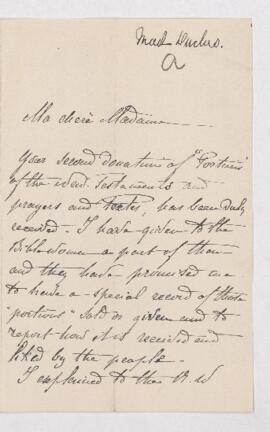 Mad. Duclos.
a
Ma chère Madame
Your second donation of "Portions"
of the Testaments and
prayers and texts, has been duly
received - I have given to the
Biblewomen a part of them
and they have promised me
to have a special record of these
"portions" sold or given and to
report how it is received and
liked by the people -
I explained to the B. W